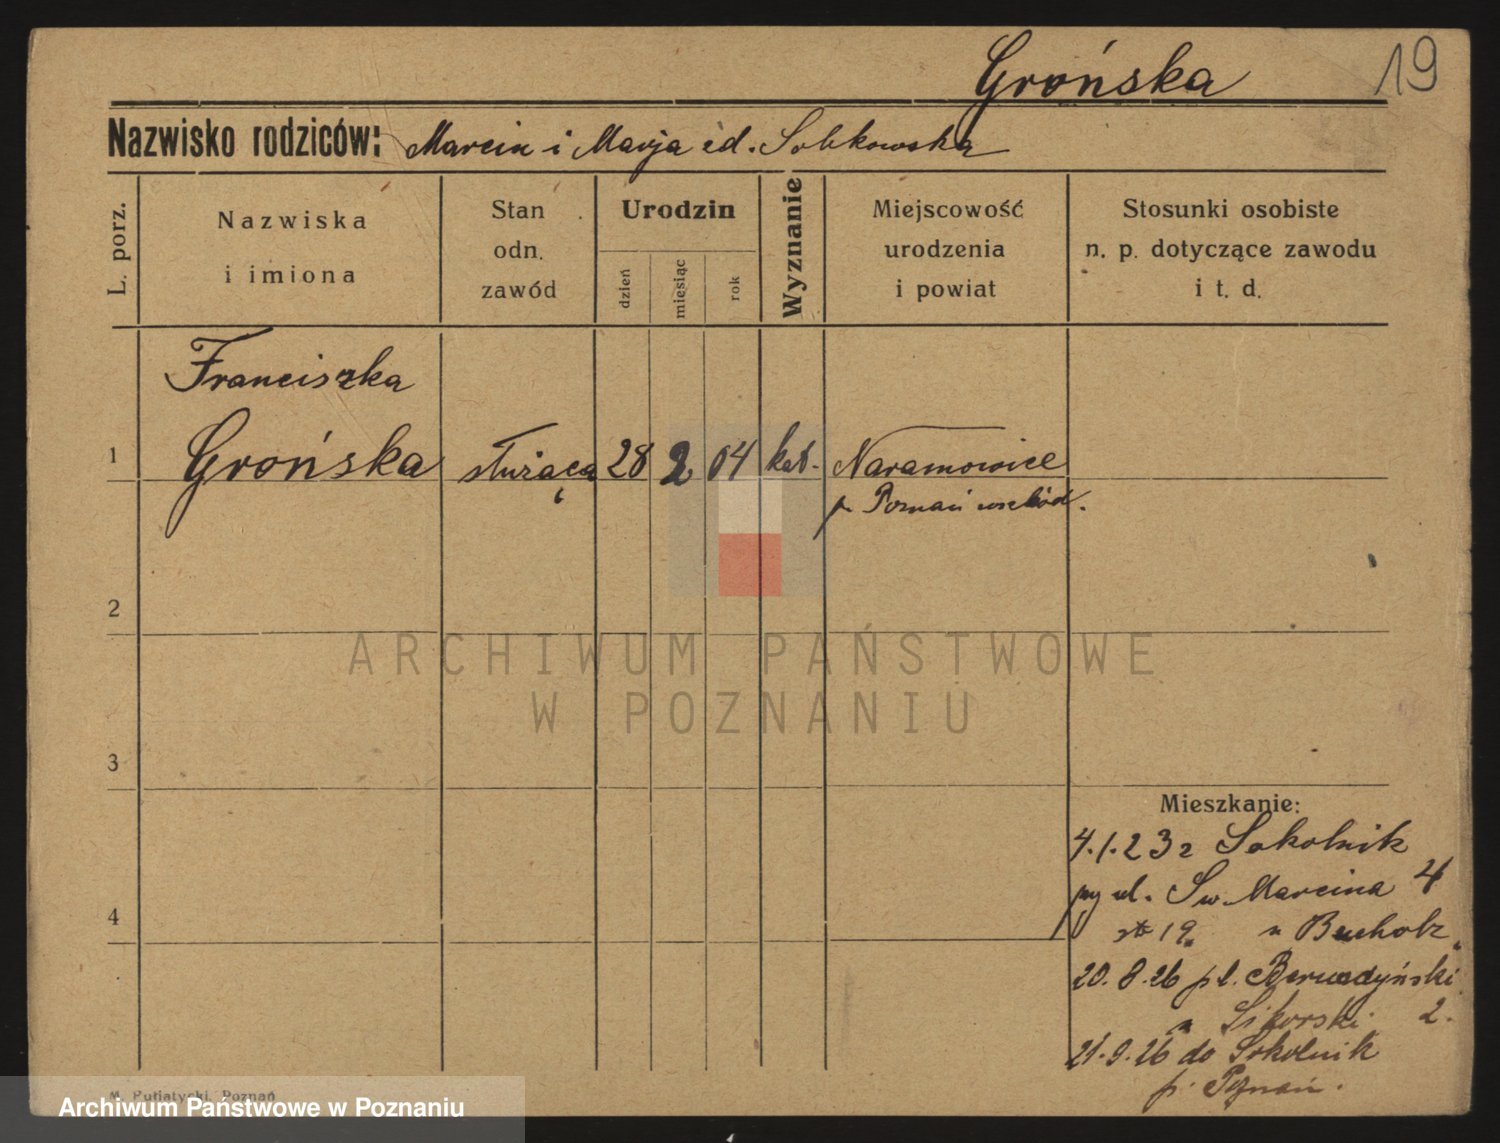 Grońska 19
Nazwisko rodziców: Marcin i Marja Sobkowska
L. porz.
Nazwiska
i imiona
Stan
odn.
zawód
Urodzin
dzień
miesiąc
rok
Wyznanie
Miejscowość
urodzenia
i powiat
Stosunki osobiste
n. p. dotyczące zawodu
i t. d.
Franciszka
1 Grońska służąca 28 2 04 kat. Naramowice
p. Poznań wschód.
2
ARCHIWUM PAŃSTWOWE
W POZNANIU
3
Mieszkanie:
4.1.23 z Sokolnik
ul. Sw. Marcina 4
4
19 u Bucholz
20.8.26 pl. Bernadyński
u Sikorski 2.
21.9.26 do Sokolnik
p. Poznań.
M. Putiatycki, Poznań
Archiwum Państwowe w Poznaniu